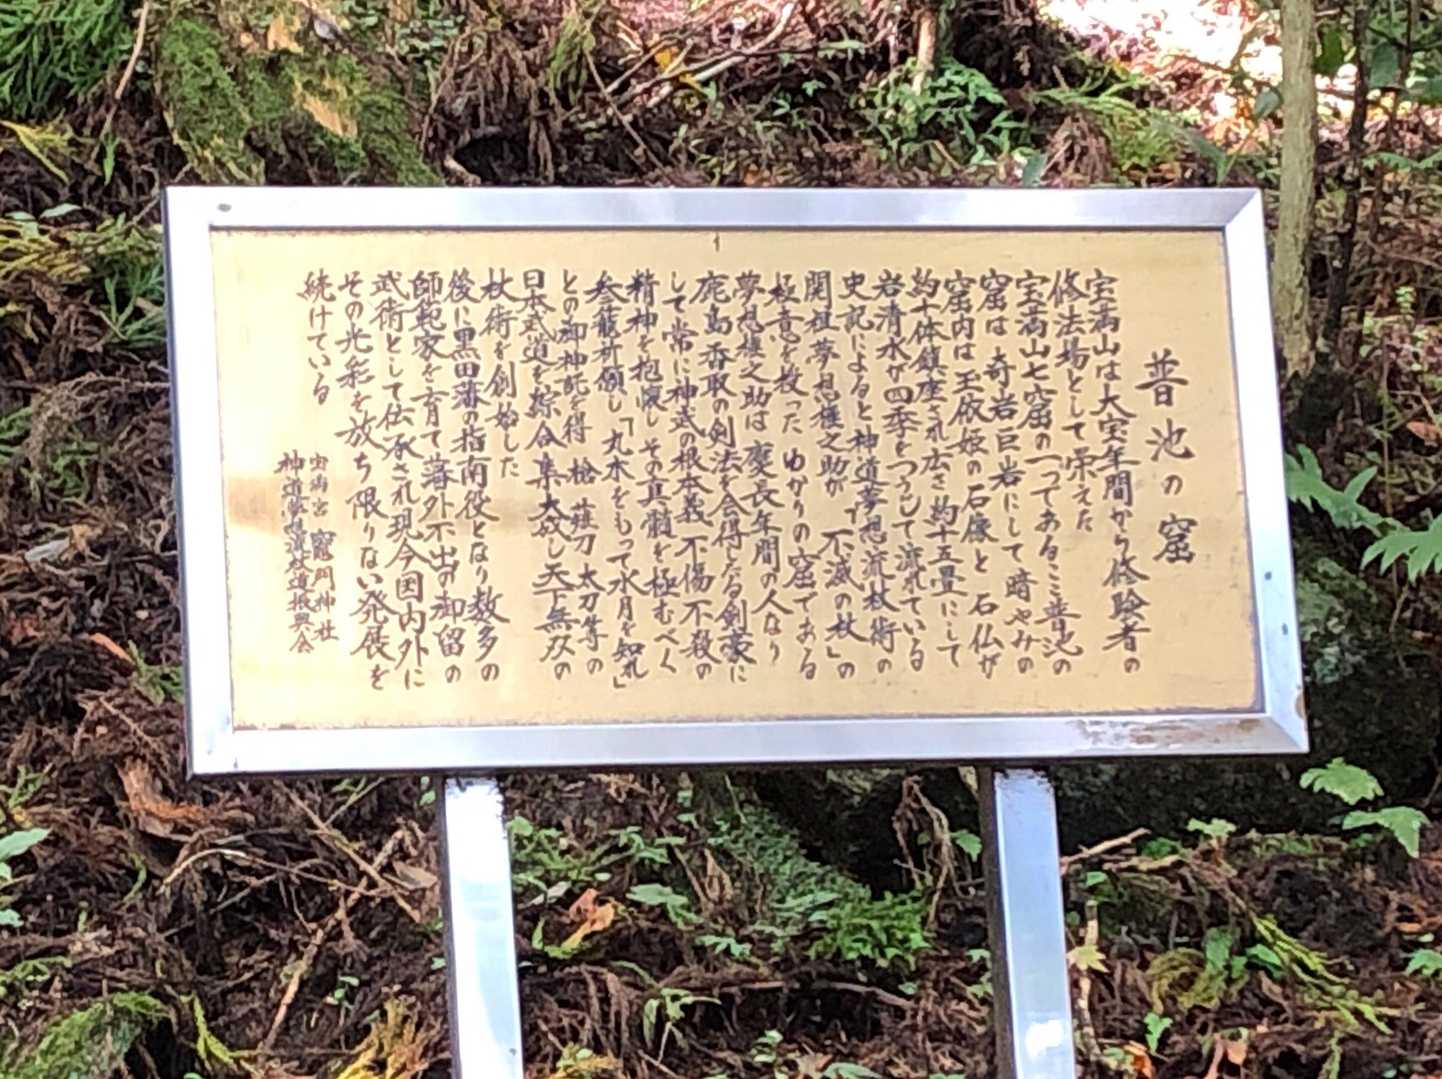 普池の窟
宝満山は大宝年間から修験者の
修法場として栄えた
宝満山七窟の一つであるここ普池の
窟は 奇岩巨岩にして暗やみの
窟内は玉依姫の石像と 石仏が
約十体鎮座され広さ約十五畳にして
岩清水が四季をつうじて流れている
史記によると神道夢想流杖術の
開祖夢想権之助が「不滅の杖」の
極意を授った ゆかりの窟である
夢想権之助は慶長年間の人なり
鹿島香取の剣法を会得したる剣豪に
して常に神武の根本義 不傷不殺の
精神を抱懐し その真髄を極むべく
参籠祈願し「丸木をもって水月を知れ」
との御神託を得 槍 薙刀 太刀等の
日本武道を綜合集大成し天下無双の
杖術を創始した
後に黒田藩の指南役となり数多の
師範家を育て 藩外不出の御留の
武術として伝承され現今国内外に
その光彩を放ち限りない発展を
続けている
宝満宮 竈門神社
神道夢想流杖道振興会